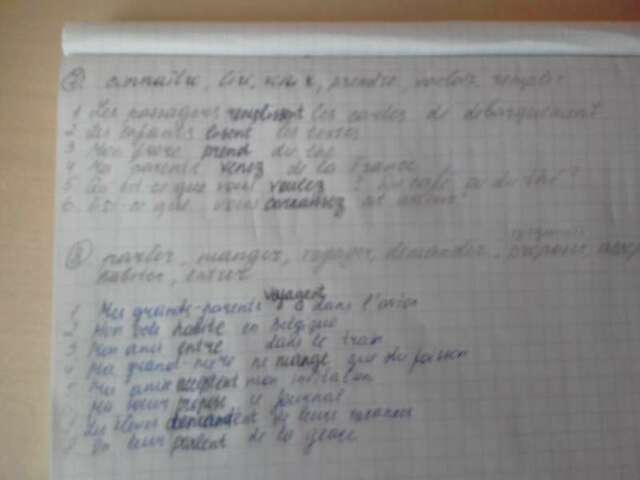 ② connaître, lire, venir, prendre, vouloir, remplir
1 Les passagers remplissent les cartes de débarquement
2 Les enfants lisent les textes
3 Mon frère prend du thé
4 Ma parents venez de la France
5 Qu'est-ce que vous voulez ? Du café ou du thé?
6. Est-ce que vous connaissez cet acteur?
③ parler, manger, voyager, demander, proposer
habiter, entrer
1 Mes grands-parents voyagent dans l'avion
2 Mon habite en Belgique
3 Mon ami entre dans le train
4 Ma grand-mère ne mange que du poisson
Mes amis acceptent mon invitation
Ma sœur propose le journal
Les élèves demandent leurs
parlent de la